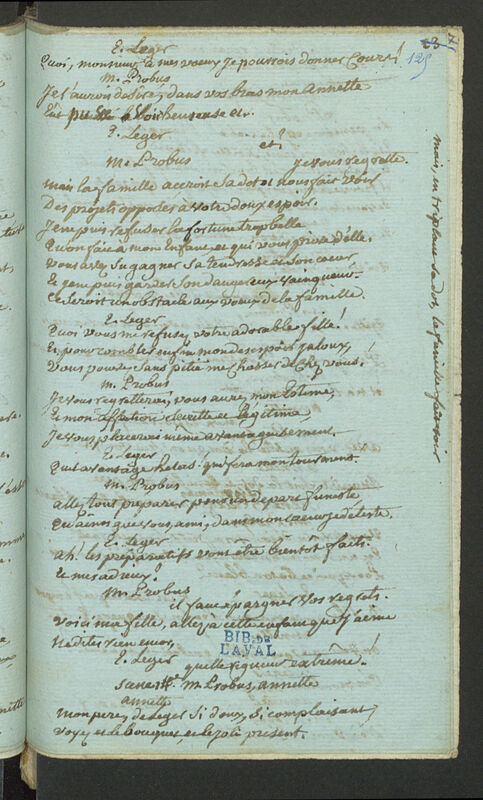 23
125
E. Leger
Quoi, monsieur, à mes voeux je pourrois donner Cours!
M. Probus
Je l'aurois desiré, dans vos bras mon Annette
Eut pu heureuse et.
E. Leger
et!
M. Probus
je vous regrette.
mais la famille accroit sa dot et nous fait voir
Des projets opposés à votre doux espoir.
Je ne puis refuser la fortune trop belle
Qu'on fait à mon Enfant, et qui vous prive d'elle.
vous avez su gagner sa tendresse et son coeur
Et je ne puis garder son dangereux vainqueur.
Ce seroit un obstacle aux voeux de la famille.
E. Leger
Quoi vous me refusez votre adorable fille!
Et, pour combler enfin mon desespoir jaloux,
Vous pouvez sans pitié me chasser de chez vous!
M. Probus
Je vous regretterai, vous aurez mon Estime,
Et mon affection est légitime,
Je vous placerai même avantageusement.
E. Leger
Quel avantage helas! qui fera mon tourment.
M. Probus
allez tout preparer pour un depart funeste
Qu'ainsi que vous, ami, dans mon coeur je deteste.
E. Leger
ah! les préparatifs vont être bientôt faits.
Et mes adieux!
M. Probus
il faut épargner vos regrets.
Voici ma fille, allez, à cette enfant que j'aime
Ne dites rien encor,
E. Leger
quelle rigueur extrême!
BIB. DE
LAVAL
scene M. Probus, annette
annette
mon pere, Leger si doux, si complaisant,
voyez et le bouquet, et le joli present.
mais, en triplant sa dot, la famille fait voir